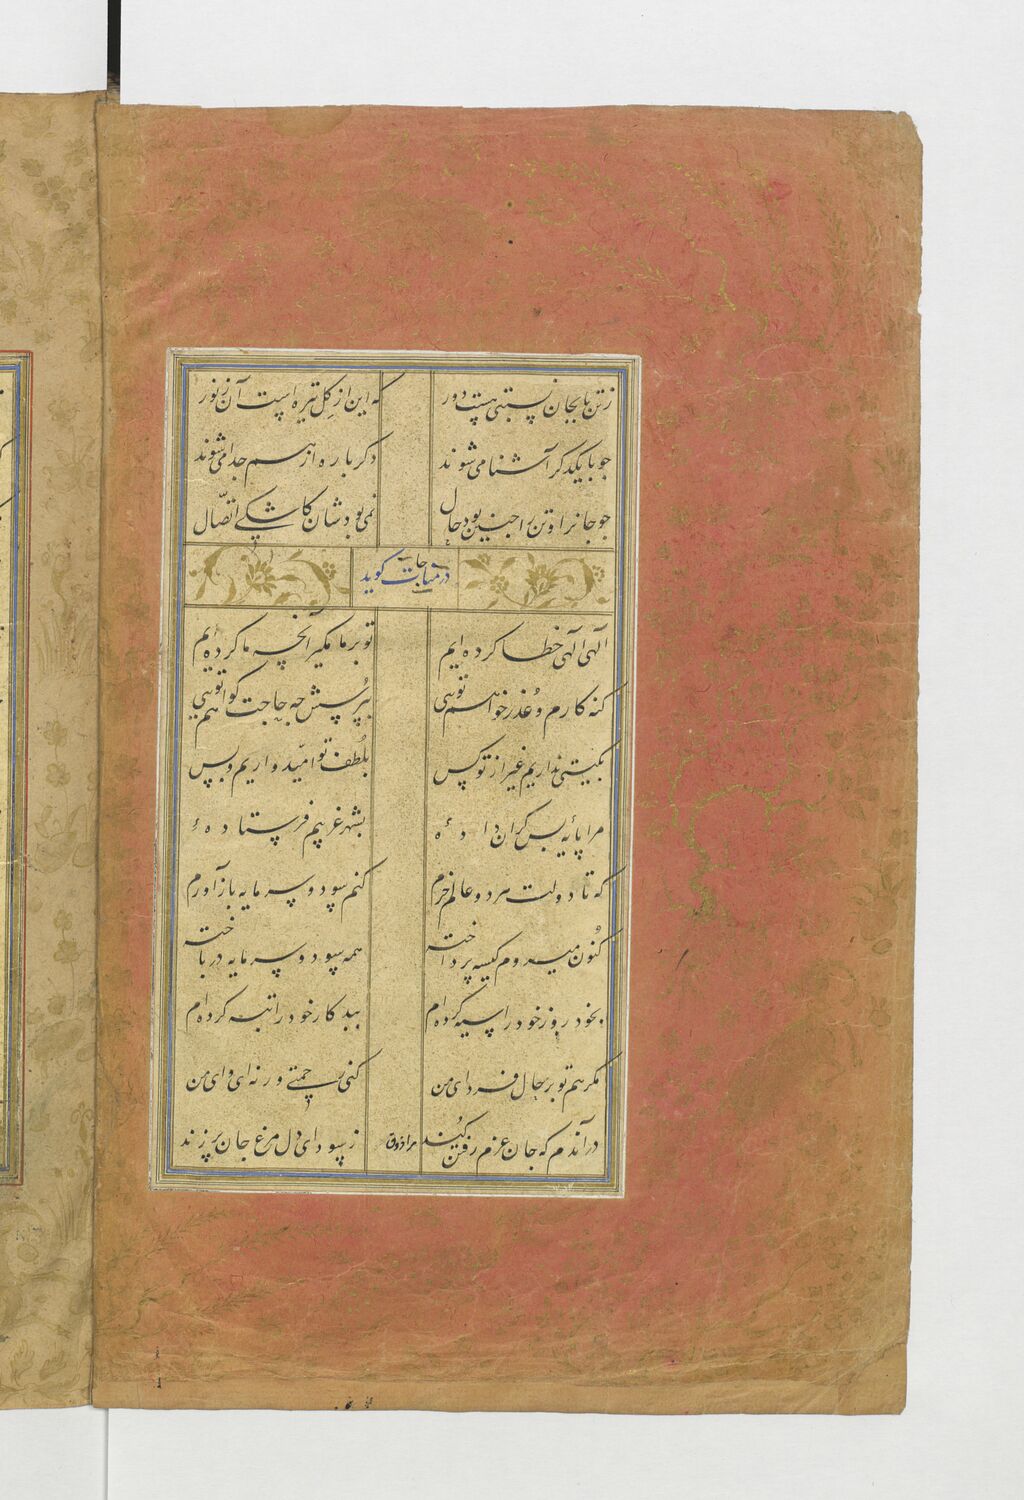 ز تن تا بجان نسبتی هست دور که این از گل تیره است آن ز نور
جو با یکدکر آشنا می شوند دکر باره از هم جدا می شوند
جو جانرا و تن را جنین بود حال نمی بود شان کاشکی اتصّال
در مناجات کوید
الهی الهی خطا کرده ایم تو بر ما مکیر آنجه ما کرده ایم
کنه کارم و عُذر خواهم توییی بپُرسش چه حاجت کواهم تویی
بکیتی نداریم غیر از تو کس بلُطف تو امّید داریم و بس
مرا پایهٔ بس کران دادهٔ بشهر غریبم فرستادهٔ
که تا دولت هر دو عالم خرم کنم سود و سرمایه باز آورم
کنُون میروم کیسه پرداخته همه سود و سرمایه در باخته
بخود روز خود را سیه کرده ام ببد کار خود را تبه کرده ام
مکر هم تو بر حال فردای من کنی رحمتی ور نه ای وای من
در آندم که جان عزم رفتن کُند ز سودای دل مرغ جان پر زند